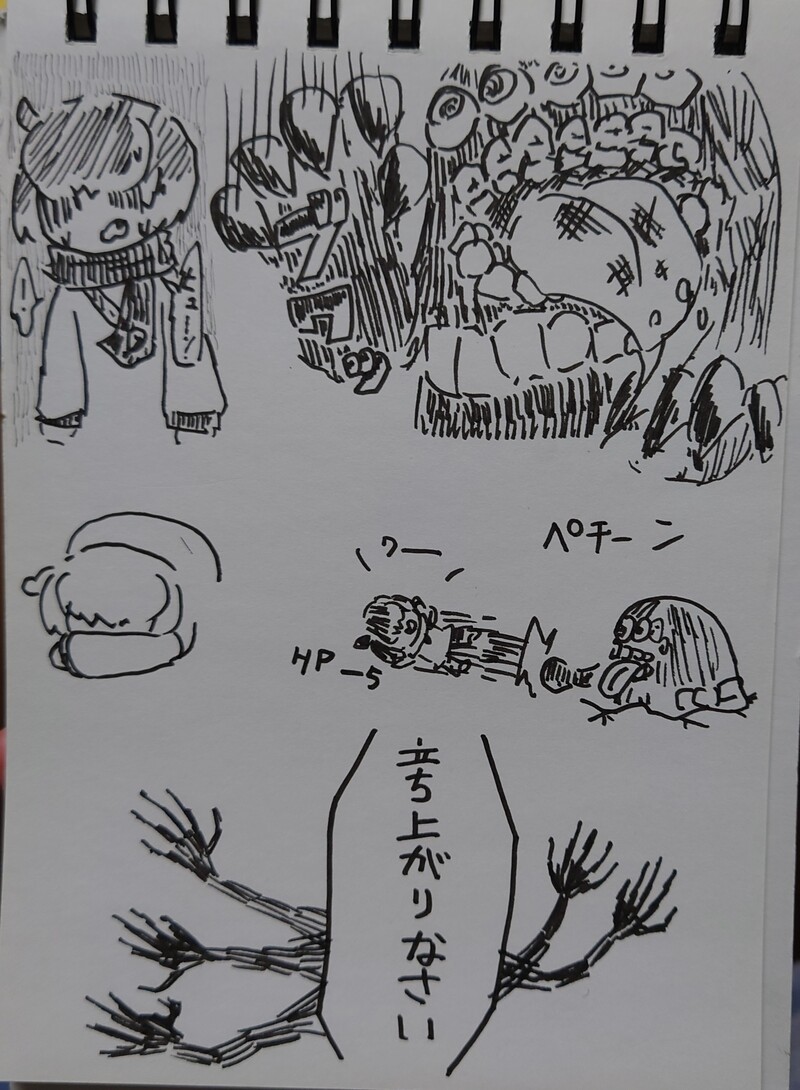 ヒューン
ペチーン
ワー
HP-5
立ち上がりなさい